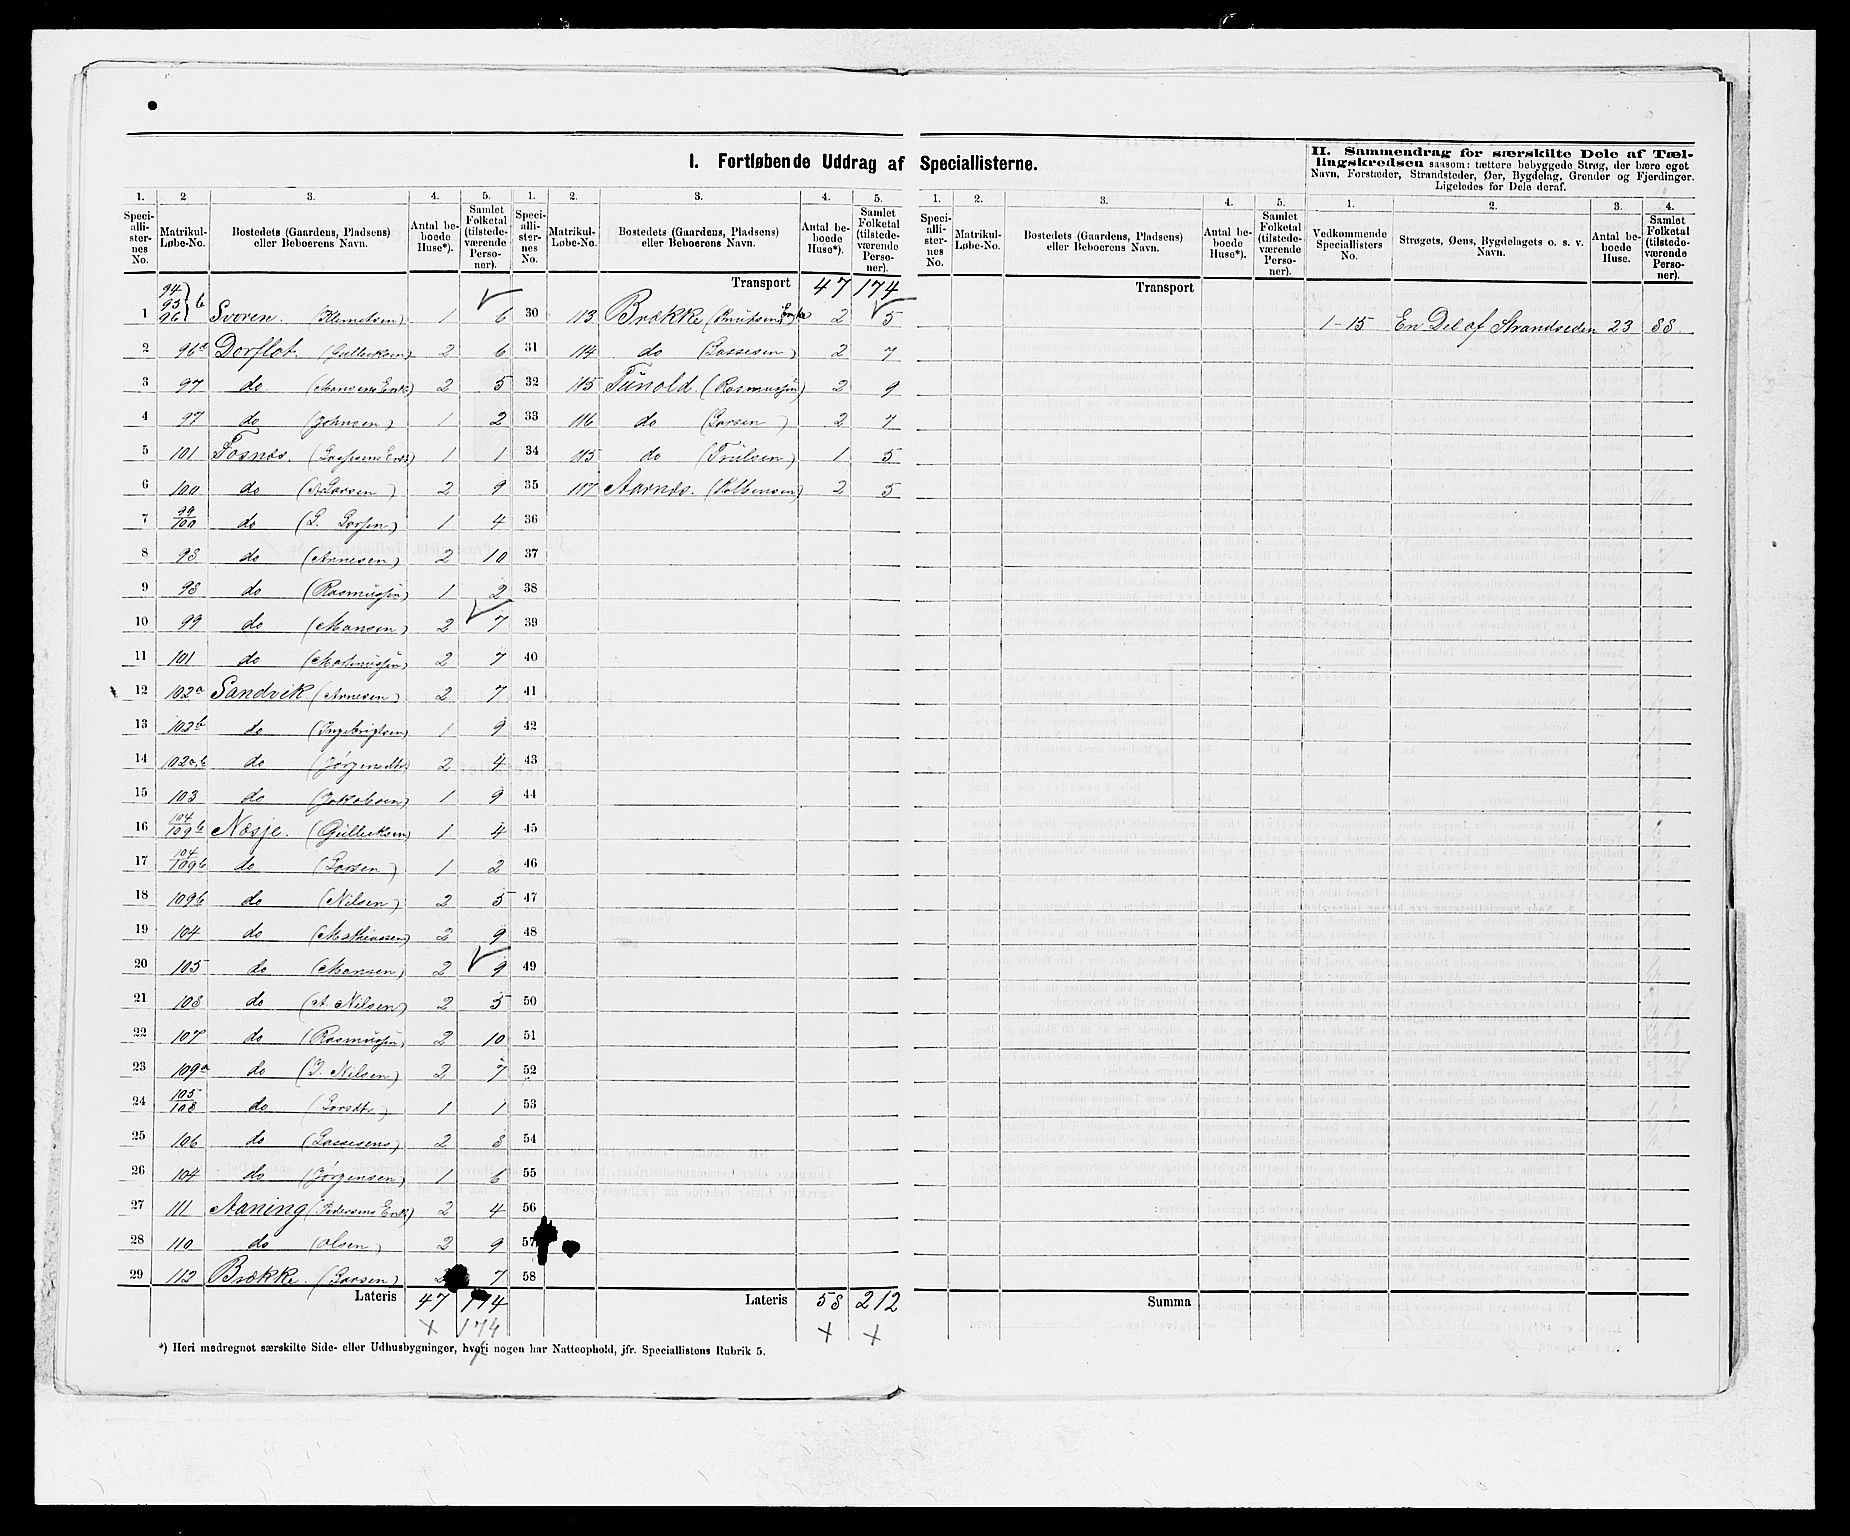 I. Fortløbende Uddrag af Speciallisterne.
II. Sammendrag for særskilte Dele af Tællingskredsen saasom: tættere bebyggede Strøg, der bære eget
Navn, Forstæder, Strandsteder, Øer, Bygdelag, Grender og Fjerdinger.
Ligeledes for Dele deraf.
1. 2 3. 4. 5. 1. 2. 3. 4. 5. 1. 2. 3. 4. 5. 1. 2. 3. 4.
Speciallisternes No. Matrikul-Løbe-No. Bostedets (Gaardens, Pladsens) eller Beboerens Navn. Antal beboede Huse*). Samlet Folketal (tilstedeværende Personer).
Speciallisternes No. Matrikul-Løbe-No. Bostedets (Gaardens, Pladsens) eller Beboerens Navn. Antal beboede Huse*). Samlet Folketal (tilstedeværende Personer).
Speciallisternes No. Matrikul-Løbe-No. Bostedets (Gaardens, Pladsens) eller Beboerens Navn. Antal beboede Huse*). Samlet Folketal (tilstedeværende Personer).
Vedkommende Speciallisters No. Strøgets, Øens, Bygdelagets o. s. v. Navn. Antal beboede Huse. Samlet Folketal (tilstedeværende Personer).
1 94 95 96 } b Svoren. (Klemetsen) 1 6
2 96a Dorflot. (Gulleiksen) 2 6
3 97 do (Monsens Enke) 2 5
4 97 do (Johnsen) 1 2
5 101 Fosnæs. (Lassesens Enke) 1 1
6 100 do (A Larsen) 2 9
7 99/100 do (L. Larsen) 1 4
8 98 do (Arnesen) 2 10
9 98 do (Rasmussen) 1 2
10 99 do (Monsen) 2 7
11 101 do 2 7
12 102a Sandvik (Arnesen) 2 7
13 102b do (Ingebrigtsen) 1 9
14 102a,b do (Jørgensdtr) 2 4
15 103 do (Jakobsen) 1 9
16 104/109b Næsje. (Gulleiksen) 1 4
17 104/109b do (Larsen) 1 2
18 109b do (Nilsen) 2 5
19 104 do (Mathiassen) 2 9
20 105 do (Monsen) 2 9
21 108 do (A. Nilsen) 2 5
22 107 do (Rasmussen) 2 10
23 109a do (J. Nilsen) 2 7
24 105/108 do (Larsdtr) 1 1
25 106 do (Lassesens) 2 8
26 104 do (Jørgensen) 1 6
27 111 Aaning (Pedersens Enke) 2 4
28 110 do (Olsen) 2 9
29 112 Brække. (Larsen) 2 7
Lateris 47 174
174
Transport 47 174
30 113 Brække (Knutsens Enke) 2 5
31 114 do (Lassesen) 2 7
32 115 Tunold. (Rasmussen) 2 9
33 116 do (Larsen) 2 7
34 115 do (Trulsen) 1 5
35 117 Aarnæs. (Kolbensen) 2 5
36
37
38
39
40
41
42
43
44
45
46
47
48
49
50
51
52
53
54
55
56
57
58
Lateris 58 212
Transport
Summa
1-15 En Del af Strandseden 23 88
*) Heri medregnet særskilte Side- eller Udhusbygninger, hvori nogen har Natteophold, jfr. Speciallistens Rubrik 5.